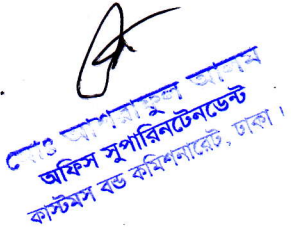 মোঃ আশরাফুল আলম
অফিস সুপারিনটেনডেন্ট
কাস্টমস বন্ড কমিশনারেট, ঢাকা।